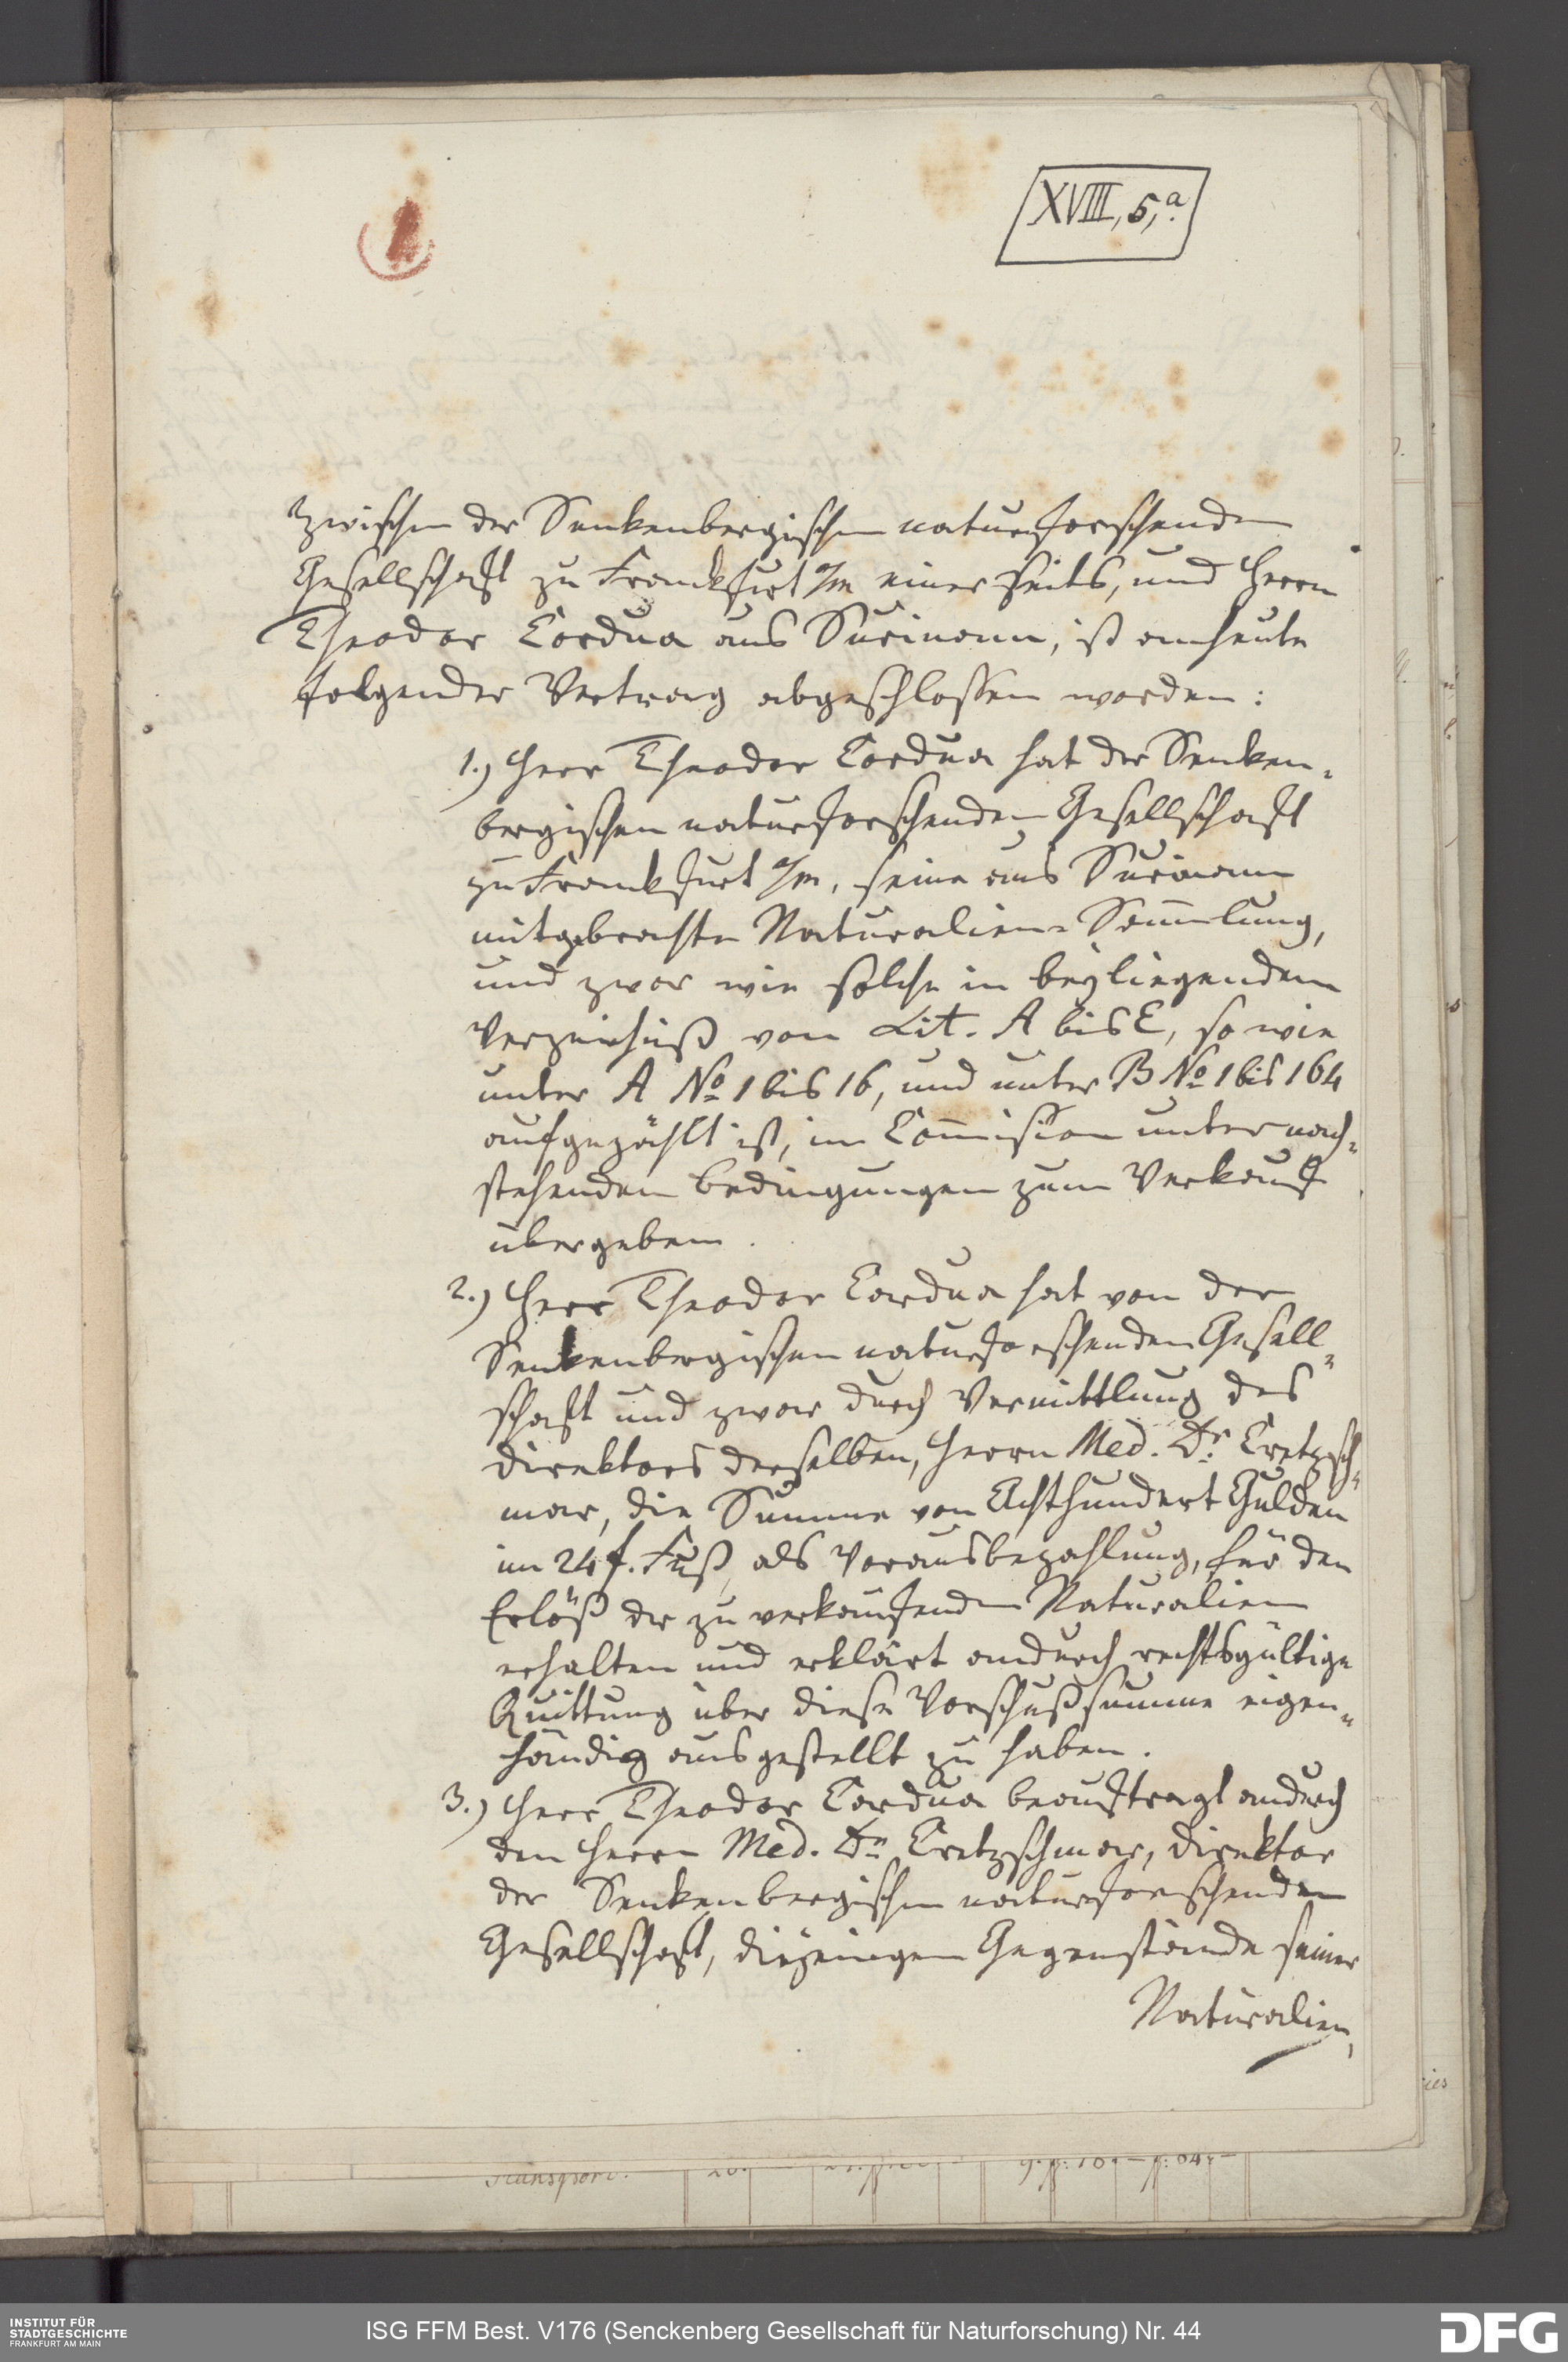 XVIII, 5, a.
1
Zwischen der Senkenbergischen naturforschenden
Gesellschaft zu Franckfurt a/m einer seits, und Herrn
Theodor Cordua aus Surinam, ist anheute
folgender Vertrag abgeschlossen worden:
1.) Herr Theodor Cordua hat der Senken-
bergischen naturforschenden Gesellschaft
zu Franckfurt a/m, seine aus Surinam
mitgebrachte Naturalien-Sam̅lung,
und zwar wie solche in beyliegendem
Verzeichniß von Lit. A bis E, so wie
unter A No 1 bis 16, und unter B No 1 bis 164
aufgezählt ist, in Com̅ission unter nach-
stehenden Bedingungen zum Verkauf
übergeben.
2.) Herr Theodor Cordua hat von der
Senkenbergischen naturforschenden Gesell-
schaft und zwar durch Vermittlung des
Direktors derselben, Herrn Med. Dr. Cretzsch-
mar, die Summe von Achthundert Gulden
im 24 f. Fuß, als Vorausbezahlung, für den
Erlöß der zu verkaufenden Naturalien
erhalten und erklärt andurch rechtsgültige
Quittung über diese Vorschußsumme eigen-
händig ausgestellt zu haben.
3.) Herr Theodor Cordua beauftragt andurch
den Herrn Med. Dr Cretzschmar, Direktor
der Senkenbergischen naturforschenden
Gesellschaft, diejenigen Gegenstände seiner
Naturalien,
Transport.
INSTITUT FÜR
STADTGESCHICHTE
FRANKFURT AM MAIN
ISG FFM Best. V176 (Senckenberg Gesellschaft für Naturforschung) Nr. 44
DFG